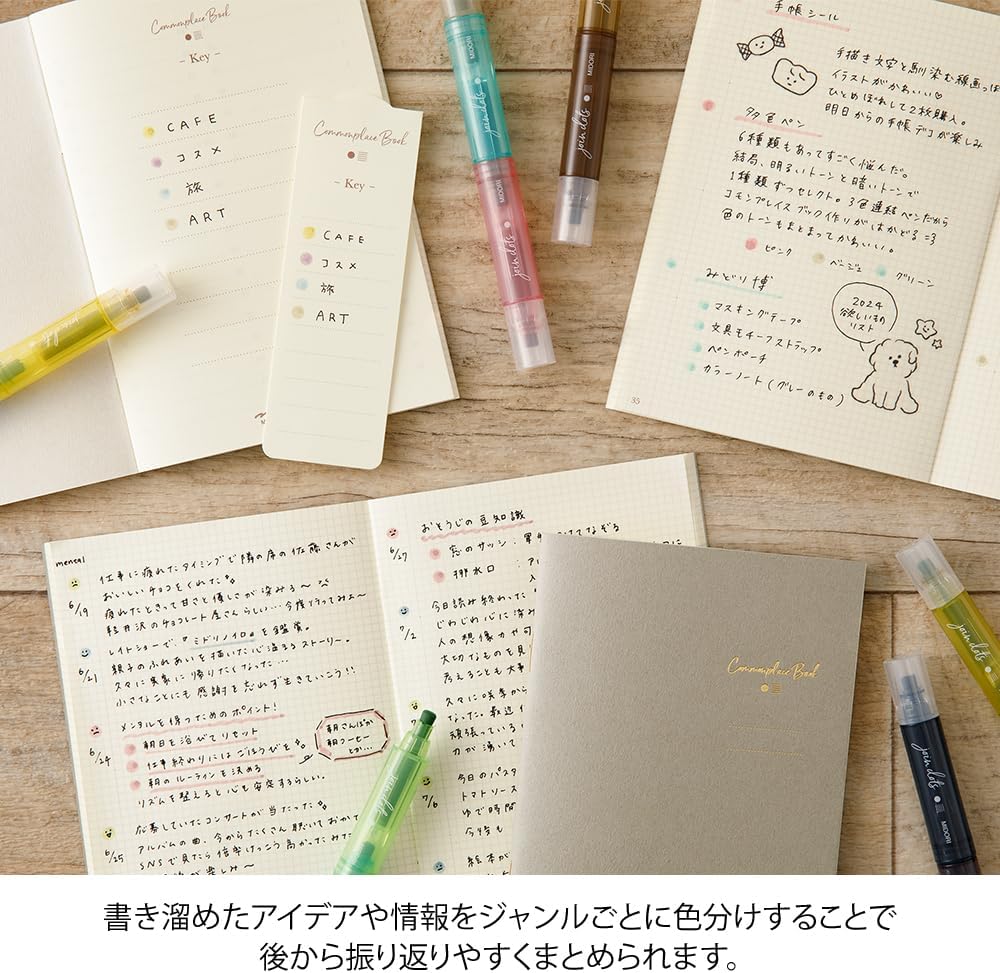 Commonplace Book
– Key –
CAFE
コスメ
旅
ART
Commonplace Book
– Key –
CAFE
コスメ
旅
ART
join dots
MIDORI
join dots
MIDORI
join dots
MIDORI
手帳シール
手描き文字と馴染む線画っぽ
イラストがかわいい♡
ひとめぼれして2枚購入。
明日からの手帳デコが楽しみ
多色ペン
6種類もあってすごく悩んだ。
結局、明るいトーンと暗いトーンで
1種類ずつセレクト。3色連結ペンだから
コモンプレイスブック作りがはかどる=3
色のトーンもまとまってかわいい。
ピンク
ベージュ
グリーン
みどり博
マスキングテープ
文具モチーフストラップ
ペンポーチ
カラーノート(グレーのもの)
2024
欲しいもの
リスト
35
mental
6/19
仕事に疲れたタイミングで隣の席の佐藤さんが
おいしいチョコをくれた
疲れたときって甘さと優しさが染みる〜
軽井沢のチョコレート屋さんらしい…今度行ってみよ〜
6/21
レイトショーで、『ミドリノイロ』を鑑賞。
親子のふれあいを描いた心温まるストーリー。
久々に実家に帰りたくなった…
小さなことにも感謝を忘れず生きていこう!!
6/24
メンタルを保つためのポイント!
朝日を浴びてリセット
仕事終わりにはごほうびを
朝のルーティンを決める
リズムを整えると心も安定するらしい。
朝さんぽか
朝コーヒー
とか…
6/25
応募していたコンサートが当たった
アルバムの曲、今からたくさん聴いておかな
SNSで見たら倍率けっこう高かったみた
が楽しみ〜
6/27
おそうじの豆知識
窓のサッシ:
てなぞる
排水口:
7/2
今日読み終わった
じわじわ心に染み
人の想像力や可
大切なものを見
考えることも大事
久々に咲季から
なった。最近
頑張っている
力が湧いて
7/6
今日のパスタ
トマトソース
ゆで時間
今時も
絵本が
Commonplace Book
join dots
join dots
join dots
MIDORI
書き溜めたアイデアや情報をジャンルごとに色分けすることで
後から振り返りやすくまとめられます。